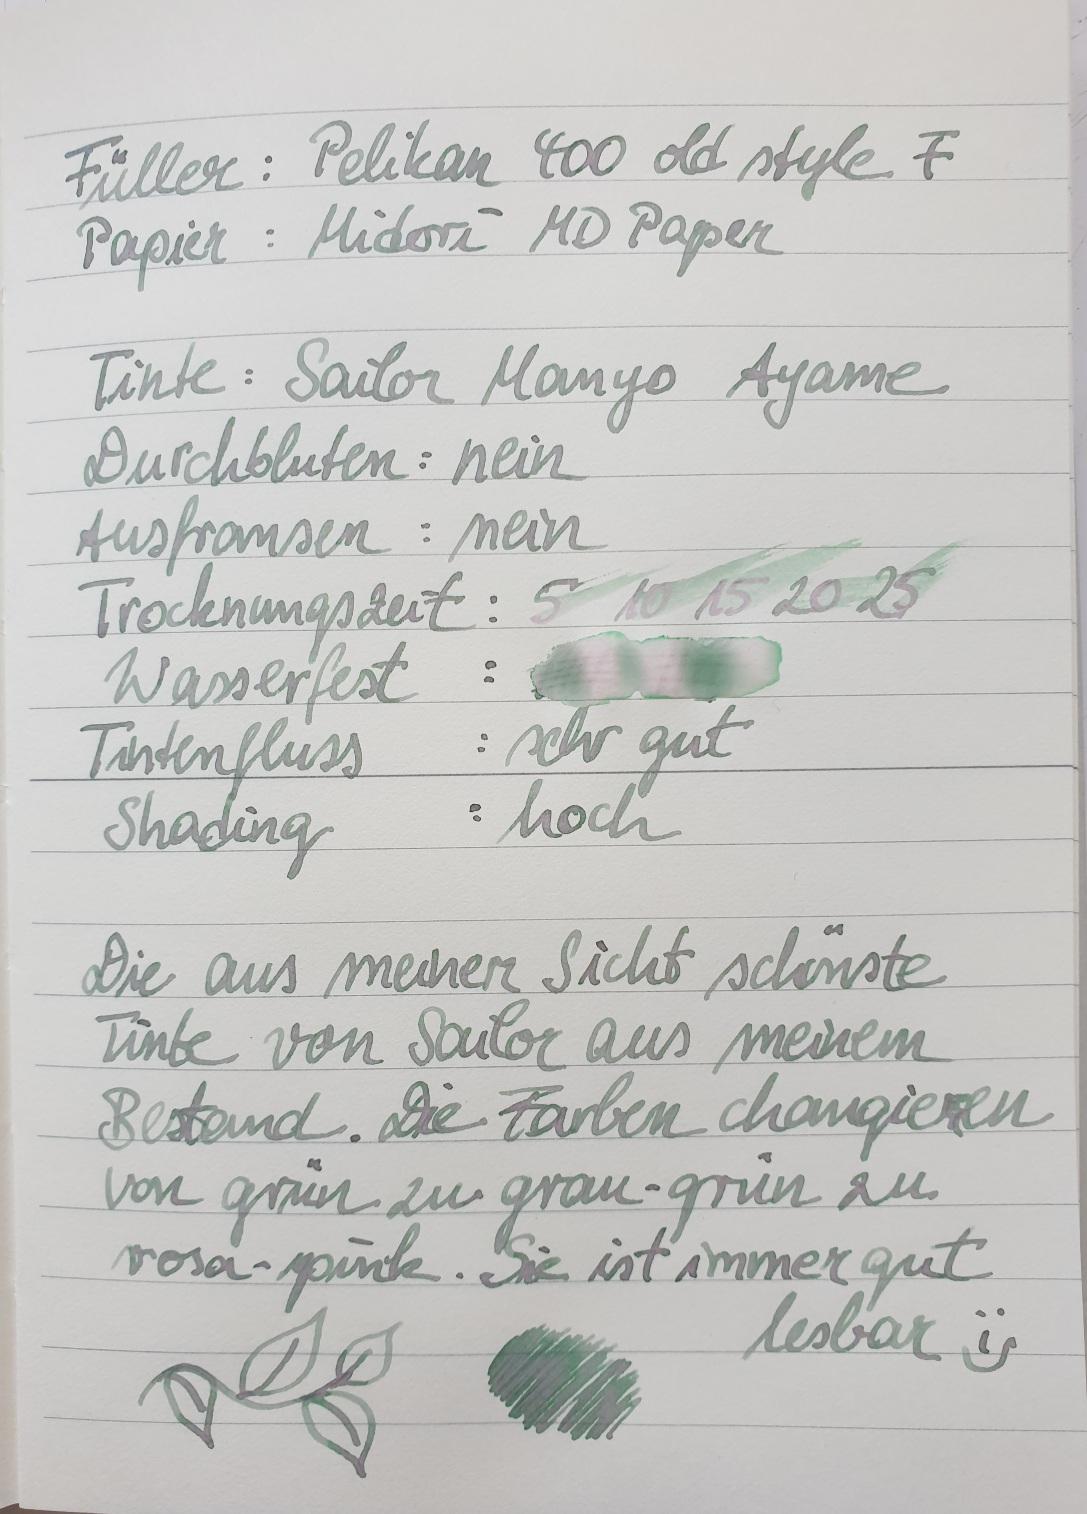 Füller: Pelikan 400 old style F
Papier: Midori MD Paper
Tinte: Sailor Manyo Ayame
Durchbluten: nein
Ausfransen: nein
Trocknungszeit: 5 10 15 20 25
Wasserfest :
Tintenfluss : sehr gut
Shading : hoch
Die aus meiner Sicht schönste
Tinte von Sailor aus meinem
Bestand. Die Farben changieren
von grün zu grau-grün zu
rosa-pink. Sie ist immer gut
lesbar